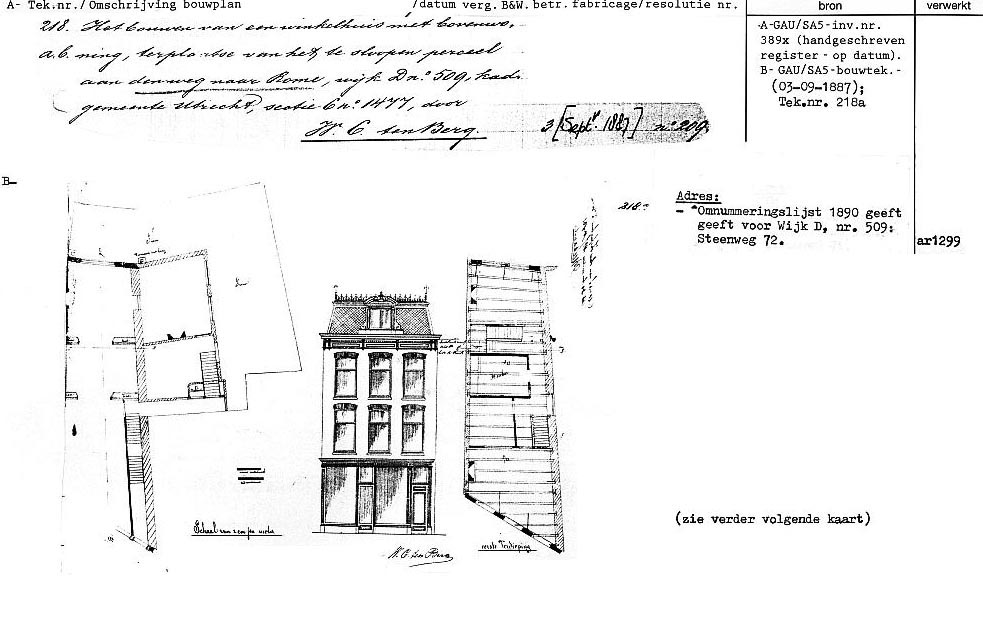 A- Tek.nr./Omschrijving bouwplan /datum verg. B&W. betr. fabricage/resolutie nr. bron verwerkt
218. Het bouwen van een winkelhuis met bovenwo-
a.b. ning, ter plaatse van het te sloopen perceel
aan den weg naar Rome, wijk D n° 509, kad.
gemeente Utrecht, sectie C n° 1477, door
W. C. ten Berg.
3 [Sept. 1887] n° 209
-A-GAU/SA5-inv.nr.
389x (handgeschreven
register - op datum).
B- GAU/SA5-bouwtek.-
(03-09-1887);
Tek.nr. 218a
B-
218
Adres:
- "Omnummeringslijst 1890 geeft
geeft voor Wijk D, nr. 509:
Steenweg 72.
ar1299
(zie verder volgende kaart)
W. C. ten Berg
eerste Verdieping